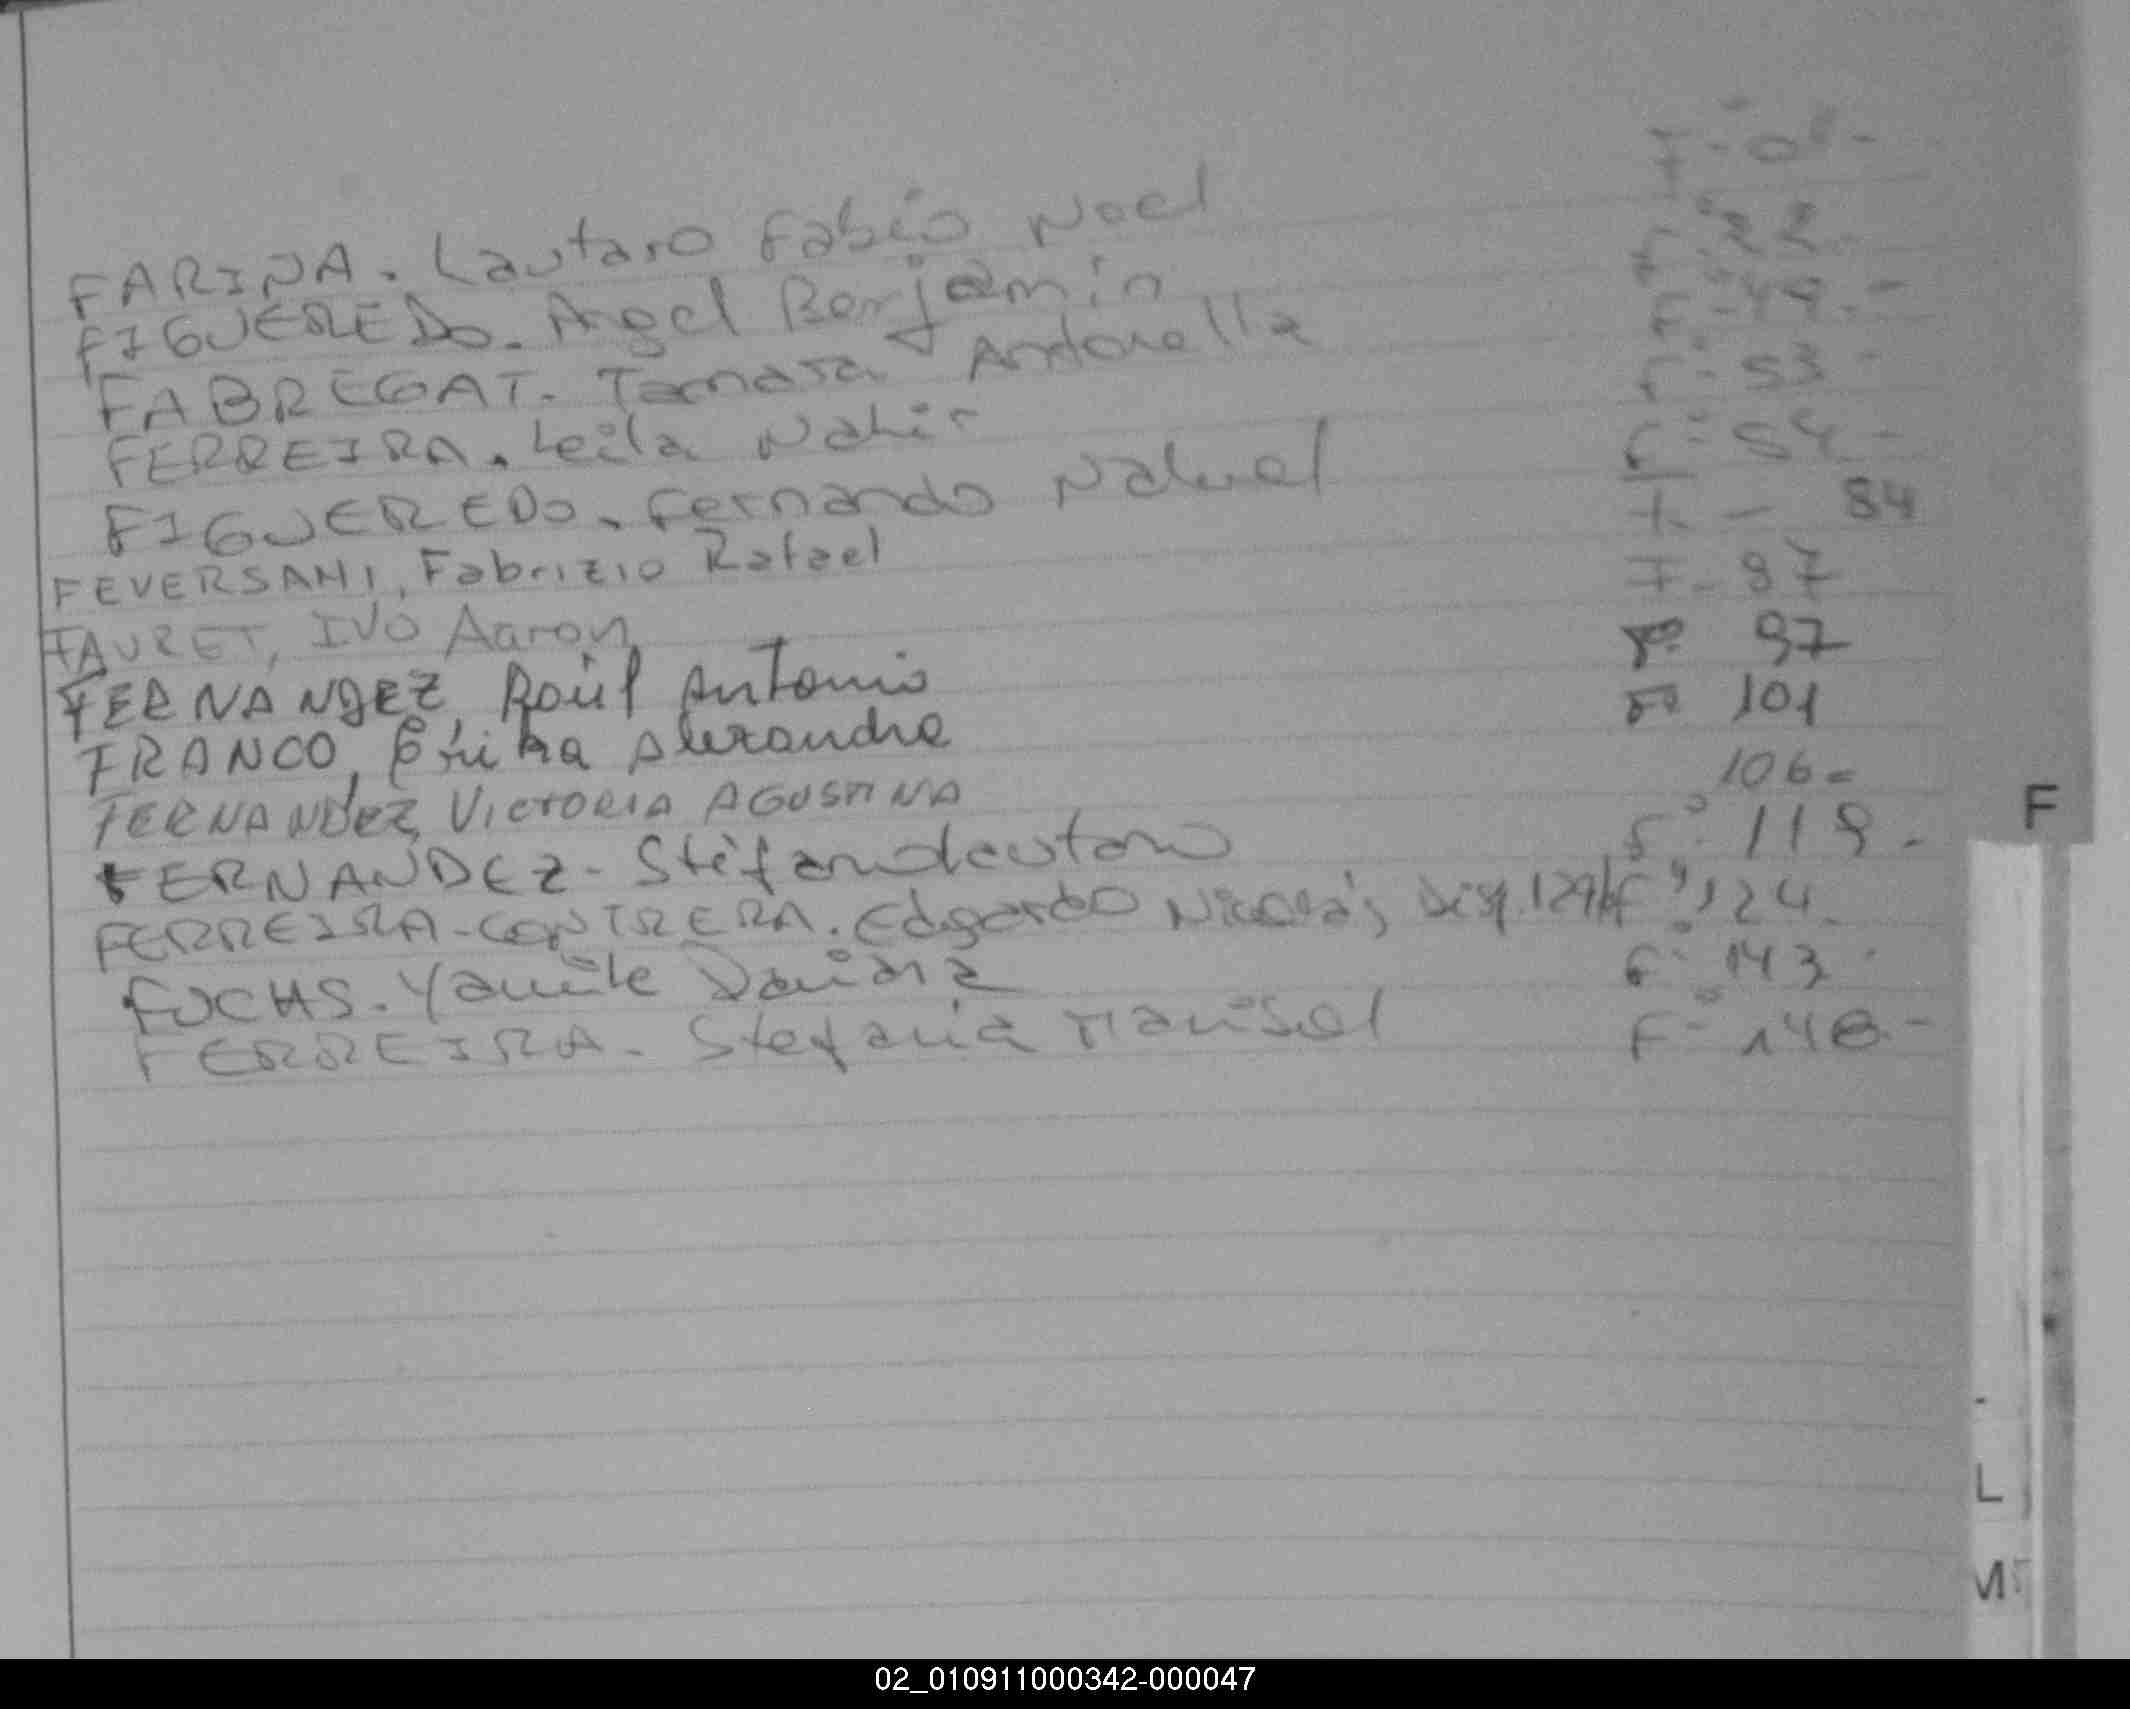 FARINA. Lautaro Fabio Noel F° 08-
FIGUEREDO. Angel Benjamin F° 22.
FABREGAT. Tamara Antonella F° 49.-
FERREIRA. Leila Nahir F° 53-
FIGUEREDO. Fernando Nahuel F° 54-
FEVERSANI, Fabrizio Rafael F. - 84
FAURET, IVO Aaron F- 97
FERNANDEZ, Raúl Antonio F° 97
FRANCO, Erika Alexandra F° 101
FERNANDEZ, VICTORIA AGUSTINA 106=
FERNANDEZ- Stéfano Lautaro F° 119.
FERREIRA-CONTRERA. Edgardo Nicolás, F° 124.
FUCHS. Yamile Daiana F° 143.
FERREIRA. Stefania Marisol F° 148.-
F
L
M
02_010911000342-000047